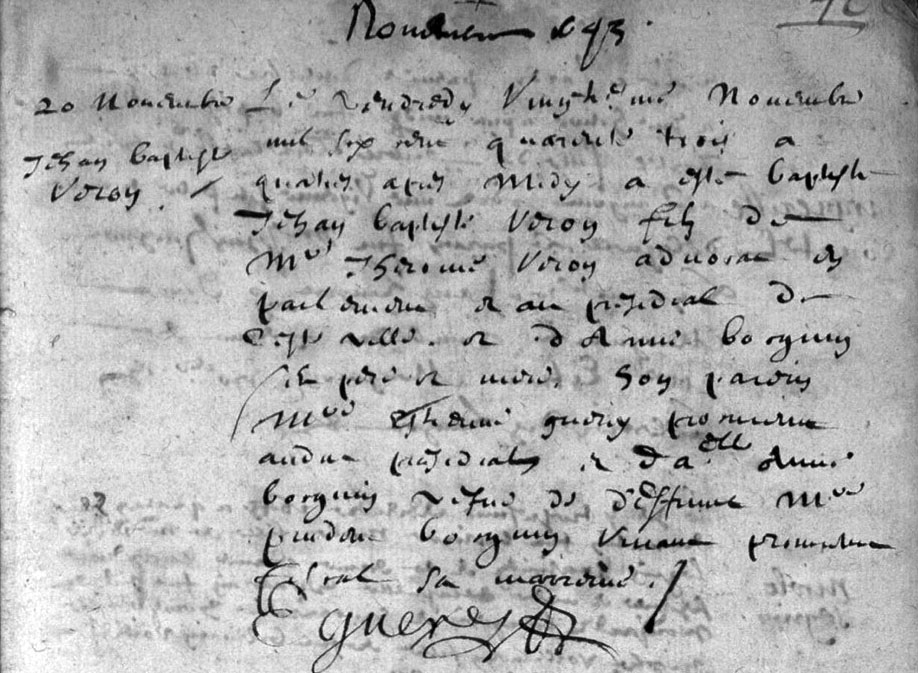 Novembre 1643.
20 Novembre
Jehan baptiste
Veron.
Le Vendredy Vingtiesme Novembre
mil six cens quarente trois a
quatre apres Midy a esté baptisé
Jehan baptiste Veron filz de
Mre Jherome Veron advocat en
parlement et au presidial de
Ceste ville. et d'Anne
ses pere et mere. Son parein
Mre Estienne guerry procureur
audict presidial et da elle Anne
vefve de deffunct Mre
vivant procureur
fiscal sa marreine.
E guerry